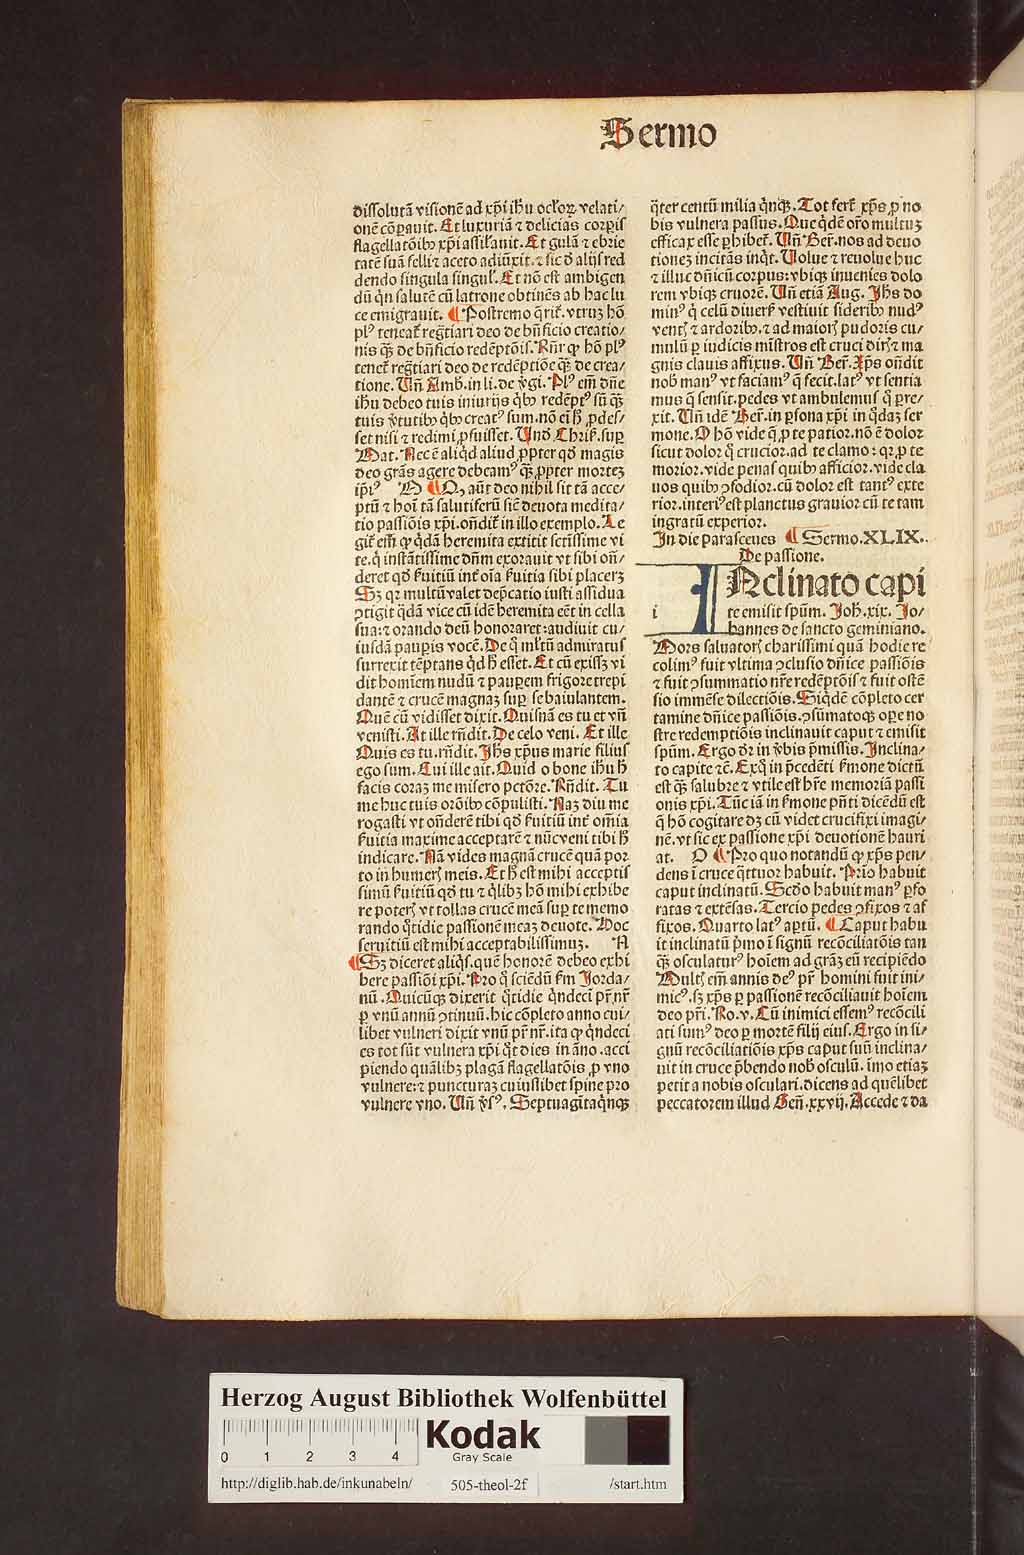 Sermo
dissolutā visionē ad xp̄i ih̄u ocl'oꝝ velati/
onē cōꝑauit. Et luxuriā ⁊ delicias corꝑis
flagellatōibꝰ xp̄i assil'auit. Et gulā ⁊ ebrie
tatē suā felli ⁊ aceto adiūxit. ⁊ sic ꝺ̄ alijs red
dendo singula singul'. Et nō est ambigen
dū qͥn salutē cū latrone obtinēs ab hac lu
ce emigrauit. ¶ Postremo q̄rit᷑. vtrūꝫ hō
plꝰ teneat᷑ reg̃tiari deo de bn̄ficio creatio/
nis qͣꝫ de bn̄ficio redēptōis. Rn̄r ꝙ hō plꝰ
tenet᷑ reg̃tiari deo de redēptiōe qͣꝫ de crea/
tione. Un̄ Amb. in li. de v̓gi. Plꝰ em̄ dn̄e
ih̄u debeo tuis iniurijs qͥbꝰ redēptꝰ sū qͣꝫ
tuis v̓tutibꝰ qͥbꝰ creatꝰ sum. nō ei h̄ ꝓdes/
set nisi ⁊ redimi ꝓfuisset. Unꝺ̄ Chris. suꝑ
Mat. Nec ē aliqͥd aliud ꝓpter qd̓ magis
deo gr̄as agere debeamꝰ qͣꝫ ꝓpter morteꝫ
ip̄iꝰ N ¶ Qꝙ aūt deo nihil sit tā acce/
ptū ⁊ hoī tā salutiferū sic̄ deuota medita/
tio passiōis xp̄i. on̄dit᷑ in illo exemplo. Le
git᷑ em̄ ꝙ qͥdā heremita extitit sc̄tissime vi
te. qͥ instātissime dn̄m exorauit vt sibi on̄/
deret qd̓ ẜuitiū int̓ oīa ẜuitia sibi placerꝫ
Sꝫ qꝛ multū valet dep̄catio iusti assidua
ꝯtigit qͥdā vice cū idē heremita eēt in cella
sua: ⁊ orando deū honoraret: audiuit cu/
iusdā pauꝑis vocē. De qͦ ml̓tū admiratus
surrexit tēptans qͥd h̓ esset. Et cū exissꝫ vi
dit homīem nudū ⁊ pauꝑem frigore trepi
dantē ⁊ crucē magnaꝫ suꝑ se baiulantem.
Quē cū vidisset dixit. Quisnā es tu et vn̄
venisti. At ille rn̄dit. De celo veni. Et ille
Quis es tu. rn̄dit. Ih̄s xp̄us marie filius
ego sum. Cui ille ait. Quid o bone ih̄u h̓
facis coraꝫ me misero pctōre. Rn̄dit. Tu
me huc tuis orōibꝰ cōpulisti. Naꝫ diu me
rogasti vt on̄derē tibi qd̓ ẜuitiū int̓ om̄ia
ẜuitia maxime acceptarē ⁊ nūc veni tibi h̓
indicare. Nā vides magnā crucē quā por
to in humer̄ meis. Et h̓ est mihi acceptis
simū ẜuitiū qd̓ tu ⁊ qͥlibꝫ hō mihi exhibe
re poter̄ vt tollas crucē meā suꝑ te memo
rando qͦtidie passionē meaꝫ deuote. Hoc
seruitiū est mihi acceptabilissimuꝫ. N
¶ Sꝫ diceret aliqͥs. quē honorē debeo exhi
bere passiōi xp̄i. Pro qͦ sciēdū ẜm Jorda/
nū. Quicūqꝫ dixerit qͦtidie qͥndeci pr̄ nr̄
ꝑ vnū annū ꝯtinuū. hic cōpleto anno cui/
libet vulneri dixit vnū pr̄ nr̄. ita ꝙ qͥndeci
es tot sūt vulnera xp̄i qͦt dies in āno. acci
piendo quālibꝫ plagā flagellatōis ꝓ vno
vulnere: ⁊ puncturaꝫ cuiuslibet spine pro
vulnere vno. Un̄ v̓sꝰ. Septuagītaqͥnqꝫ
qͣter centū milia qͥnqꝫ. Tot fert᷑ xp̄s ꝓ no
bis vulnera passus. Que qͥdē or̄o multuꝫ
efficax esse ꝑhibet᷑. Un̄ Ber. nos ad deuo
tioneꝫ incitās inqͥt. Uolue ⁊ reuolue huc
⁊ illuc dn̄icū corpus: vbiqꝫ inuenies dolo
rem vbiqꝫ cruorē. Un̄ etiā Aug. Ih̄s do
minꝰ qͥ celū diuers̄ vestiuit sideribꝰ nudꝰ
ventꝭ ⁊ ardoribꝰ. ⁊ ad maiorꝭ pudoris cu/
mulū ꝑ iudicis mīstros est cruci dirꝭ ⁊ ma
gnis clauis affixus. Un̄ Ber. Xp̄s on̄dit
nob̓ manꝰ vt faciamꝰ q̄ fecit. latꝰ vt sentia
mus q̄ sensit. pedes vt ambulemus qͣ ꝑre/
xit. Un̄ idē Ber. in ꝑsona xp̄i in qͥdaꝫ ser
mone. O hō vide q̄ ꝓ te patior. nō ē dolor
sicut dolor qͦ crucior. ad te clamo: qꝛ ꝓ te
morior. vide penas quibꝰ afficior. vide cla
uos quibꝰ ꝯfodior. cū dolor est tantꝰ exte
rior. interiꝰ est planctus grauior cū te tam
ingratū experior.
In die parasceues ¶ Sermo. XLIX.
De passione.
INclinato capi
te emisit spūm. Joh̄. xix. Jo/
hannes de sancto geminiano.
Mors saluatorꝭ charissimi quā hodie re
colimꝰ fuit vltima ꝯclusio dn̄ice passiōis
⁊ fuit ꝯsummatio nr̄e redēptōis ⁊ fuit ostē
sio immēse dilectiōis. Siqͥdē cōpleto cer
tamine dn̄ice passiōis. ꝯsūmatoqꝫ oꝑe no
stre redemptiōis inclinauit caput ⁊ emisit
spūm. Ergo dr̄ in v̓bis p̄missis. Inclina/
to capite ⁊c̄. Exqͦ in p̄cedēti ẜmone dictū
est qͣꝫ salubre ⁊ vtile est hr̄e memoriā passi
onis xp̄i. Tūc iā in ẜmone pn̄ti dicēdū est
q̄ hō cogitare dꝫ cū videt crucifixi imagi/
nē. vt sic ex passione xp̄i deuotionē hauri
at. O ¶ Pro quo notandū ꝙ xp̄s pen/
dens ī cruce qͣttuor habuit. Prīo habuit
caput inclinatū. Scd̓o habuit manꝰ ꝑfo
ratas ⁊ extēsas. Tercio pedes ꝯfixos ⁊ af
fixos. Quarto latꝰ aꝑtū. ¶ Caput habu
it inclinatū pͥmo ī signū recōciliatōis tan
qͣꝫ osculaturꝰ hoīem ad grāꝫ eū recipiēdo
Multꝭ em̄ annis deꝰ pr̄ homini fuit ini/
micꝰ. sꝫ xp̄s ꝑ passionē recōciliauit hoīem
deo pr̄i. Ro. v. Cū inimici essemꝰ recōcili
ati sumꝰ deo ꝑ mortē filij eius. Ergo in si/
gnū recōciliatiōis xp̄s caput suū inclina/
uit in cruce p̄bendo nob̓ osculū. īmo etiaꝫ
petit a nobis osculari. dicens ad quēlibet
peccatorem illud Gen̄. xxvij. Accede ⁊ da
i
Herzog August Bibliothek Wolfenbüttel
0 1 2 3 4
Kodak
Gray Scale
http://diglib.hab.de/inkunabeln/ 505-theol-2f /start.htm